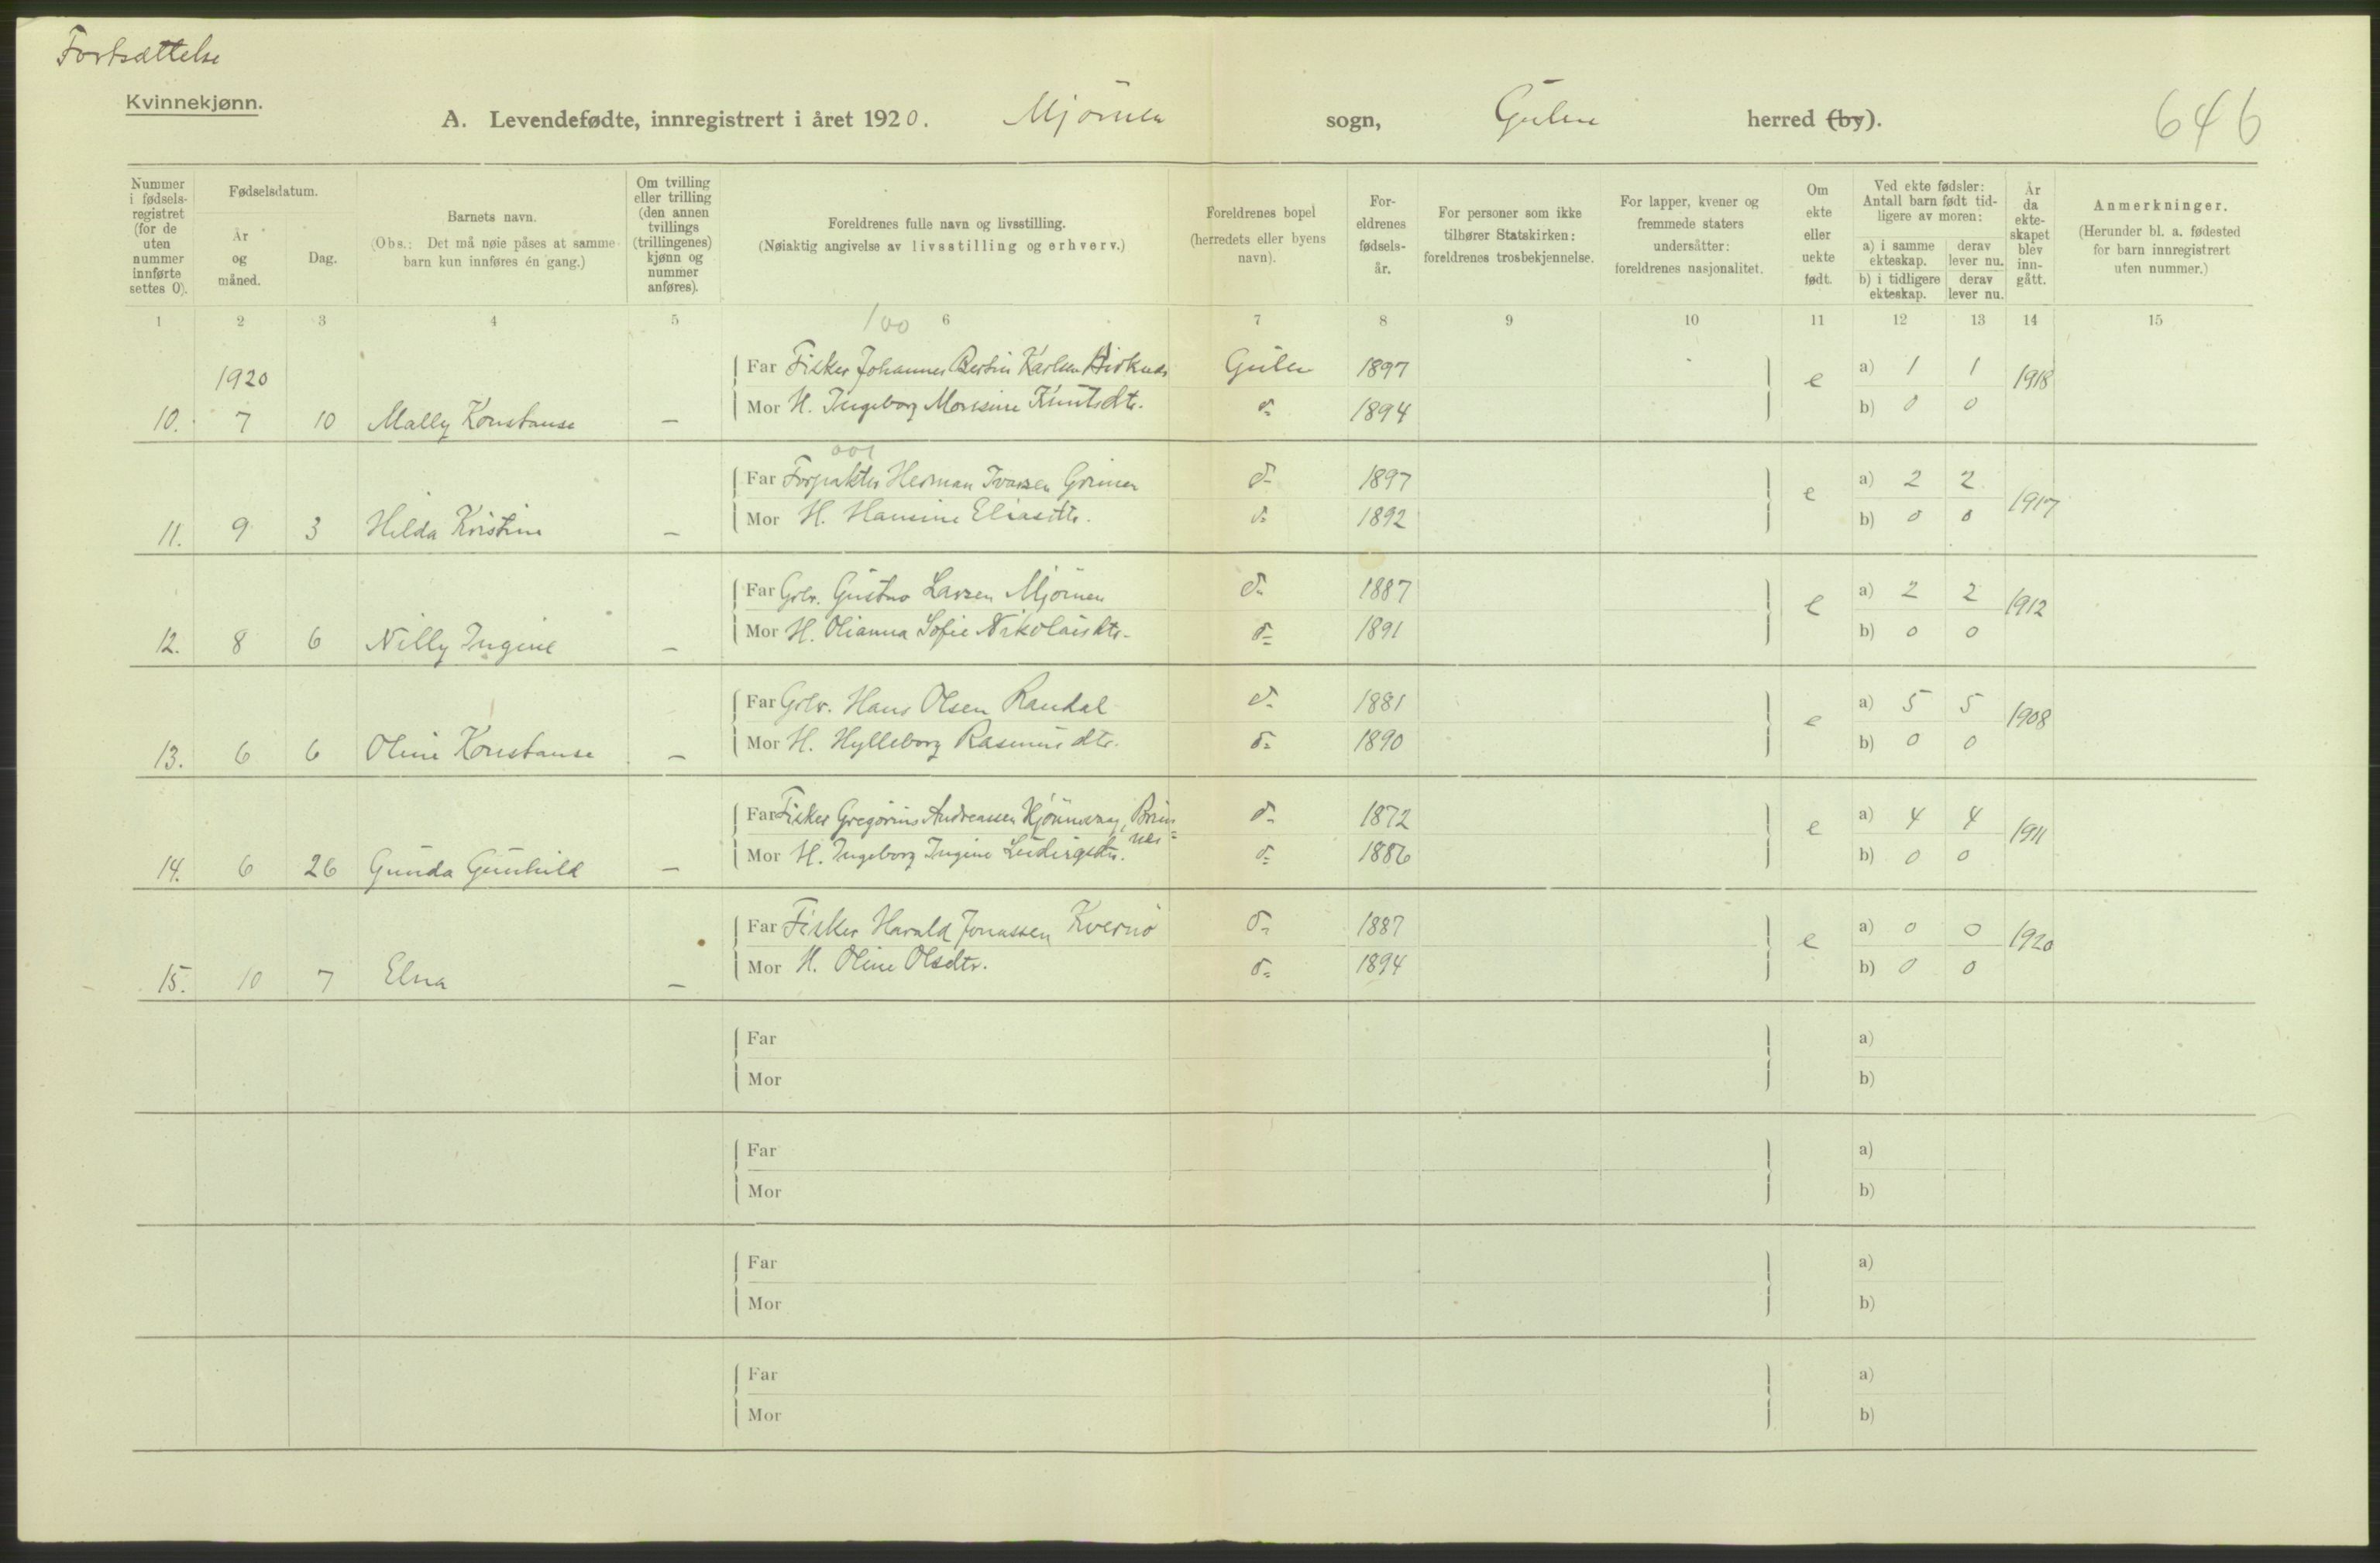 Fortsættelse
Kvinnekjønn.
A. Levendefødte, innregistrert i året 1920. Mjömen sogn, Gulen herred (by). 646
Nummer i fødsels-registret (for de uten nummer innførte settes 0).
Fødselsdatum.
År og måned.
Dag.
Barnets navn.
(Obs.: Det må nøie påses at samme barn kun innføres én gang.)
Om tvilling eller trilling (den annen tvillings (trillingenes) kjønn og nummer anføres).
Foreldrenes fulle navn og livsstilling.
(Nøiaktig angivelse av livsstilling og erhverv.)
Foreldrenes bopel (herredets eller byens navn).
For-eldrenes fødsels-år.
For personer som ikke tilhører Statskirken: foreldrenes trosbekjennelse.
For lapper, kvener og fremmede staters undersåtter: foreldrenes nasjonalitet.
Om ekte eller uekte født.
Ved ekte fødsler: Antall barn født tid-ligere av moren:
a) i samme ekteskap.
derav lever nu.
b) i tidligere ekteskap.
derav lever nu.
År da ekte-skapet blev inn-gått.
Anmerkninger.
(Herunder bl. a. fødested for barn innregistrert uten nummer.)
1 2 3 4 5 6 7 8 9 10 11 12 13 14 15
100
1920
Far Fisker Johannes Bertin Karlsen Birknes Gulen 1897 a) 1 1
10. 7 10 Mally Konstanse — Mor H. Ingeborg Monsine Knutsdtr. d- 1894 e b) 0 0 1918
001
Far Forpakter Herman Ivarsen Grimen d- 1897 a) 2 2
11. 9 3 Hilda Kristine — Mor H. Hansine Eliasdtr. d- 1892 e b) 0 0 1917
Far Grbr. Gustav Larsen Mjömen d- 1887 a) 2 2
12. 8 6 Nilly Ingine — Mor H. Olianna Sofie Nikolaisdtr. d- 1891 e b) 0 0 1912
Far Grbr. Hans Olsen Randal d- 1881 a) 5 5
13. 6 6 Oline Konstanse — Mor H. Hylleborg Rasmusdtr. d- 1890 e b) 0 0 1908
Far Fisker Gregorius Andreassen Hjönnevaag, d- 1872 a) 4 4
14. 6 26 Gunda Gunhild — Mor H. Ingeborg Ingine Ludvigsdtr. d- 1886 e b) 0 0 1911
Far Fisker Harald Jonassen Kvernö d- 1887 a) 0 0
15. 10 7 Elna — Mor H. Oline Olsdtr. d- 1894 e b) 0 0 1920
Far a)
Mor b)
Far a)
Mor b)
Far a)
Mor b)
Far a)
Mor b)